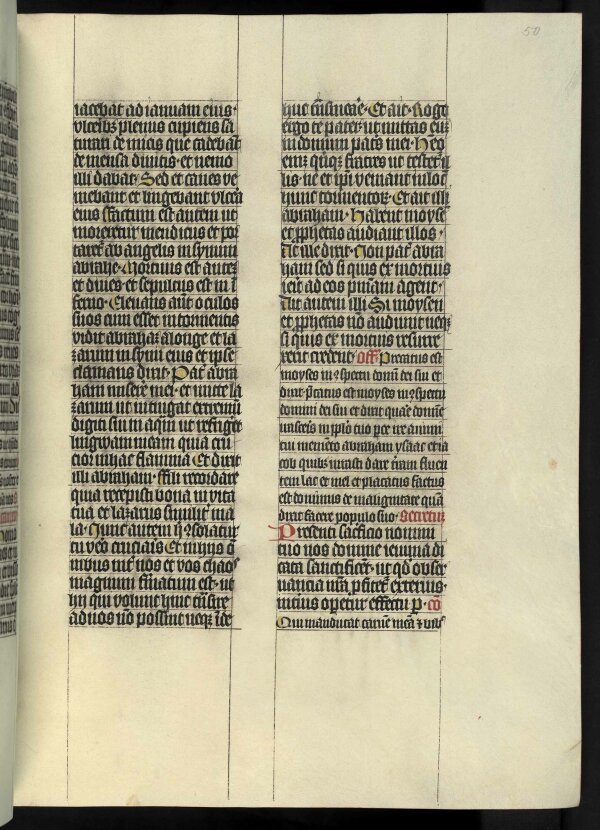 50
iacebat ad ianuam eius·
vlceribꝫ plenus cupiens sa
turari de micis que cadebāt
de mensa diuitis· et nemo
illi dabat· Sed et canes ve
niebant et lingebant vlcera
eius ffactum est autem ut
moreretur mendicus et por
taretʳ ab angelis in synum
abrahe· Mortuus est autē
et diues· et sepultus est in ī
ferno· Eleuans aūt oculos
suos cum esset in tormentis
vidit abrahā a longe et la
zarum in synu eius et ipse
clamans dixit· Patʳ abra
ham miserere mei· et mitte la
zarum ut intingat extremū
digiti sui in aqm̄ ut refrigeret
lingwam meam quia cru
cior in hac flamma Et dixit
illi abraham· ffili recordare
quia recepisti bona in vita
tua et lazarus similitʳ ma
la· Nunc autem hic ꝯsolatur
tu vēo cruciaris Et in hijs o
mnibus intʳ nos et vos chaos
magnum firmatum est· ut
hij qui volunt hinc trāsire
ad vos nō possint neqꝫ inde
huc trāsmeare· Et ait· Rogo
ergo te pater· ut mittas eū
in domum patris mei· Habeo
enim quinqꝫ fratres ut testetʳ il
lis· ne et ipsi veniant in locū
hunc tormentorum· Et ait illi
abraham· Habent moysen
et ꝓphetas audiant illos·
At ille dixit· Non patʳ abra
ham sed si quis ex mortuis
ierit ad eos pniam agent·
Ait autem illi Si moysen
et ꝓphetas nō audiunt neqꝫ
si quis ex mortuis resurre
xerit credent· off Precatus est
moyses in ꝯspectu domini dei sui et
dixit precatus est moyses in ꝯspectu
domini dei sui et dixit quare domine
irasceris in pplo tuo parce ire anime
tue memēto abraham ysaac et ia
cob quibꝫ iurasti dare terram fluen
tem lac et mel et placatus factus
est dominus de malignitate quā
dixit facere populo suo· Secretum
Presenti sacrificio nomini
tuo nos domine ieiunia di
cata sanctificet· ut qd obser
uancia nr̄a ꝓfitetʳ exterius·
interius operetur effectu p· co
Qui manducat carnē meā ⁊ bibit